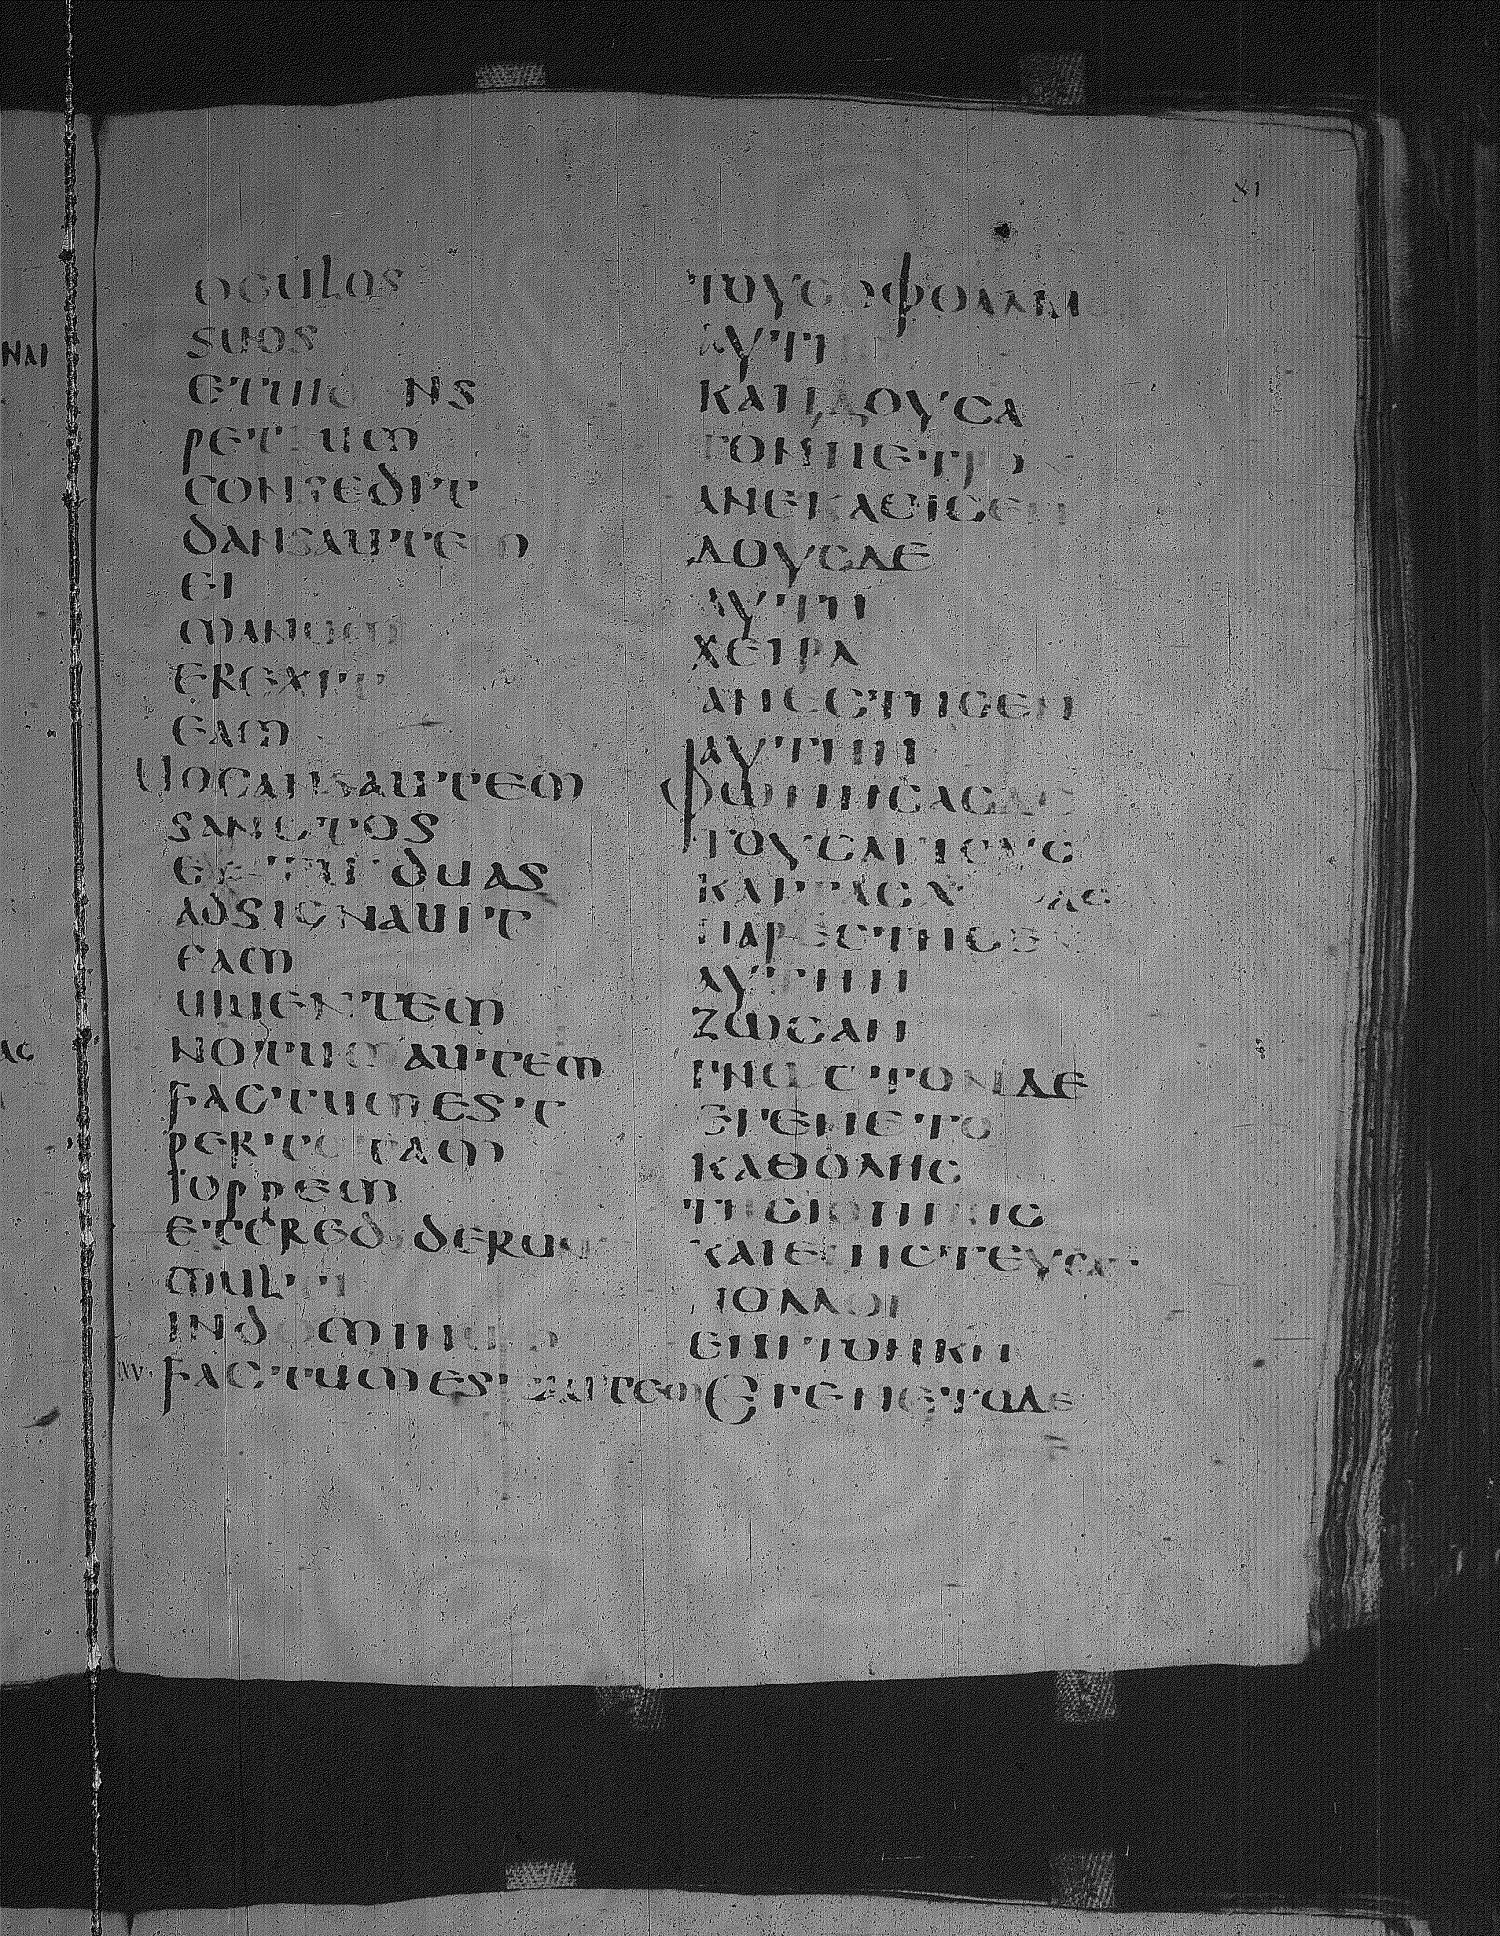 81
oculos
suos
petrum
consedit
dansautem
ei
manum
erexit
eam
uocansautem
sanctos
et uiduas
adsignauit
eam
uiuentem
notumautem
factumest
pertotam
ioppem
etcrediderun
multi
indominum
factumest autem
ΤΟΥСΟΦΘΑΛΜ
ΑΥΤΗ
ΚΑΙΙΔΟΥСΑ
ΤΟΝΠΕΤΡΟ
ΑΝΕΚΑΘΙСΕΝ
ΔΟΥСΔΕ
ΑΥΤΗ
ΧΕΙΡΑ
ΑΝΕСΤΗСΕΝ
ΑΥΤΗΝ
ΦΩΝΗСΑСΔΕ
ΤΟΥСΑΓΙΟΥС
ΠΑΡΕСΤΗСΕ
ΑΥΤΗΝ
ΖΩСΑΝ
ΓΝΩСΤΟΝΔΕ
ΕΓΕΝΕΤΟ
ΚΑΘΟΛΗС
ΤΗСΙΟΠΠΗС
ΚΑΙΕΠΙСΤΕΥСΑΝ
ΠΟΛΛΟΙ
ΕΠΙΤΟΝΚΝ
ΕΓΕΝΕΤΟΔΕ